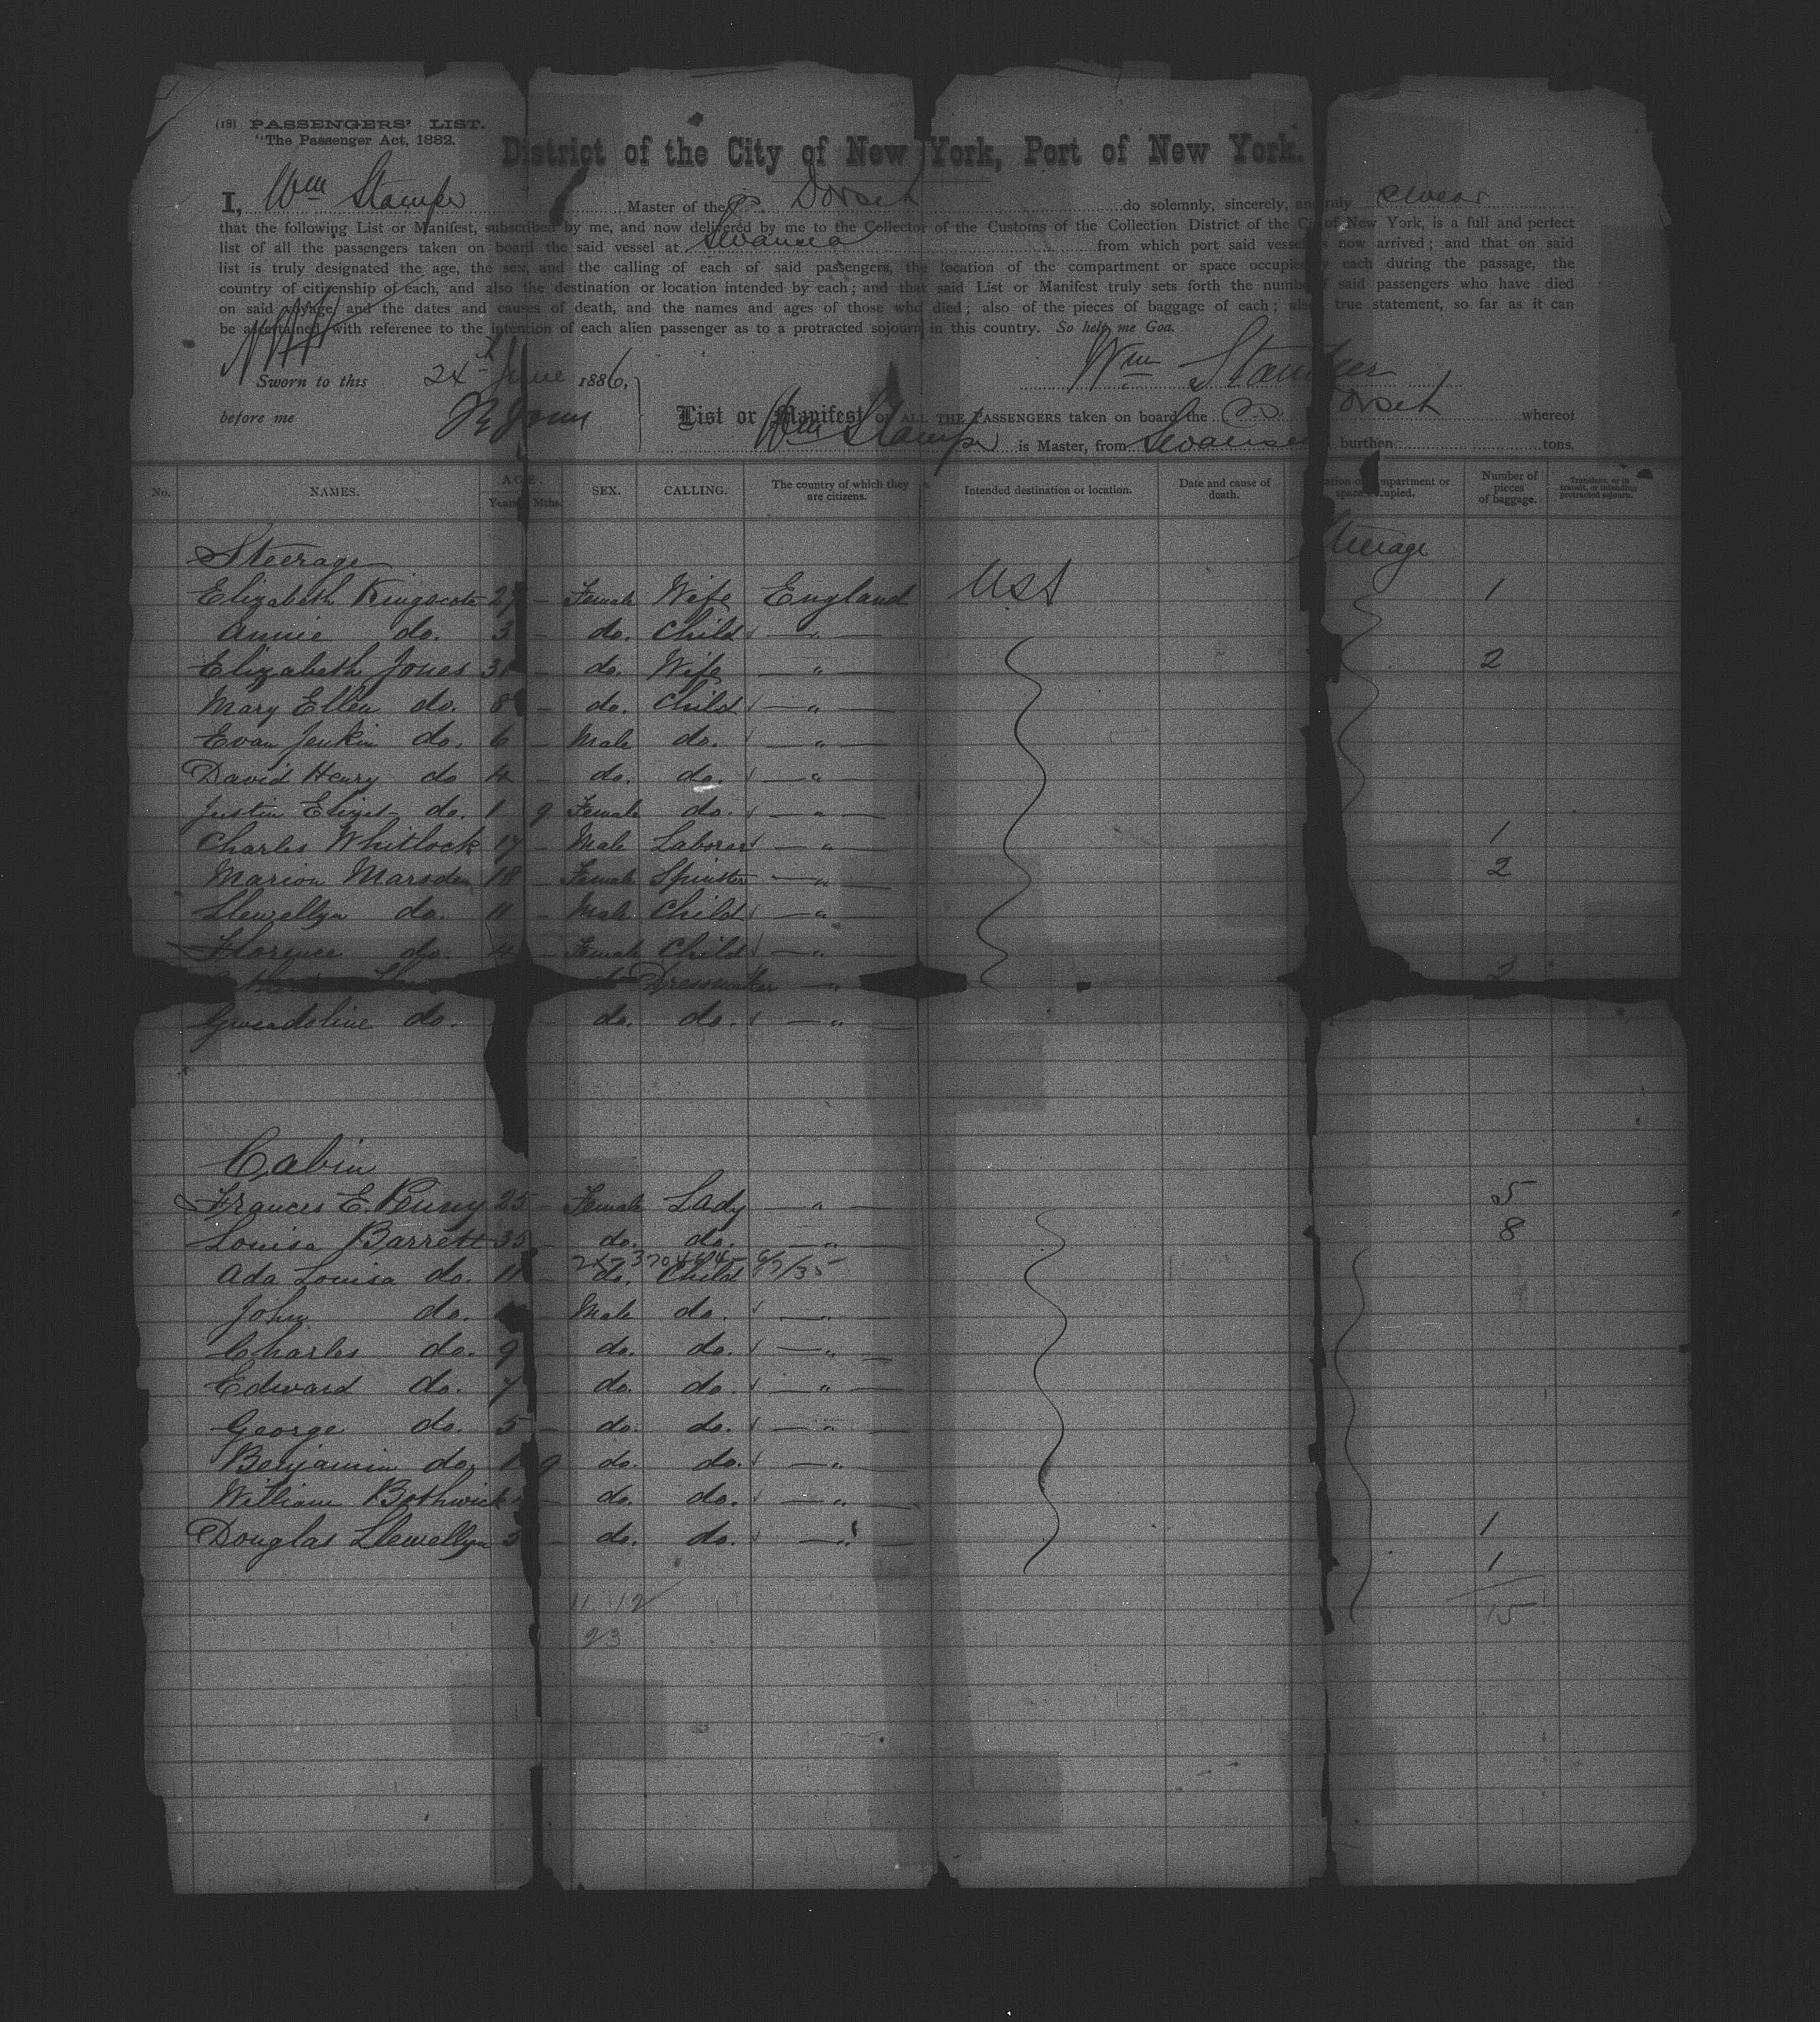 (18) PASSENGERS' LIST.
"The Passenger Act, 1882.
District of the City of New York, Port of New York.
I, Wm Stamper Master of the S.S. Dorset do solemnly, sincerely, and truly swear
that the following List or Manifest, subscribed by me, and now delivered by me to the Collector of the Customs of the Collection District of the City of New York, is a full and perfect
list of all the passengers taken on board the said vessel at Swansea from which port said vessel is now arrived; and that on said
list is truly designated the age, the sex, and the calling of each of said passengers, the location of the compartment or space occupied by each during the passage, the
country of citizenship of each, and also the destination or location intended by each; and that said List or Manifest truly sets forth the number of said passengers who have died
on said voyage, and the dates and causes of death, and the names and ages of those who died; also of the pieces of baggage of each; also true statement, so far as it can
be ascertained, with reference to the intention of each alien passenger as to a protracted sojourn in this country. So help me God.
Sworn to this 24th June 1886, Wm Stamper
before me
List or Manifest OF ALL THE PASSENGERS taken on board the S.S. Dorset whereof
Wm Stamper is Master, from Swansea burthen tons.
No. NAMES. AGE. Years Mths. SEX. CALLING. The country of which they are citizens. Intended destination or location. Date and cause of death. Location of compartment or space occupied. Number of pieces of baggage. Transient, or in transit, or intending protracted sojourn.
Steerage Steerage
Elizabeth Kingscote 27 - Female Wife England USA 1
Annie do. 3 - do. Child - " -
Elizabeth Jones 31 - do. Wife " 2
Mary Ellen do. 8 - do. Child - " -
Evan Jenkin do. 6 - Male do. - " -
David Henry do 4 - do. do. - " -
do. 1 9 Female do. - " -
Charles Whitlock 17 - Male Laborer - " 1
Marion Marsden 18 - Female Spinster - " - 2
Llewellyn do. 11 - Male Child - "
Florence do. 4 - Female Child - "
do Dressmaker - "
Gwendoline do. do. do. - " -
Cabin
Frances E. Penny 25 - Female Lady - " - 5
Louisa Barrett 35 - do. do. - " 8
Ada Louisa do. 11 - do. Child
John do. Male do. - "
Charles do. 9 do. do. - " -
Edward do. 7 do. do. - " -
George do. 5 - do. do. - " -
Benjamin do. 1 9 do. do. - "
William Bothwick - do. do. - " - 1
Douglas Llewellyn 5 - do. do. - " - 1
11. 12 15
23